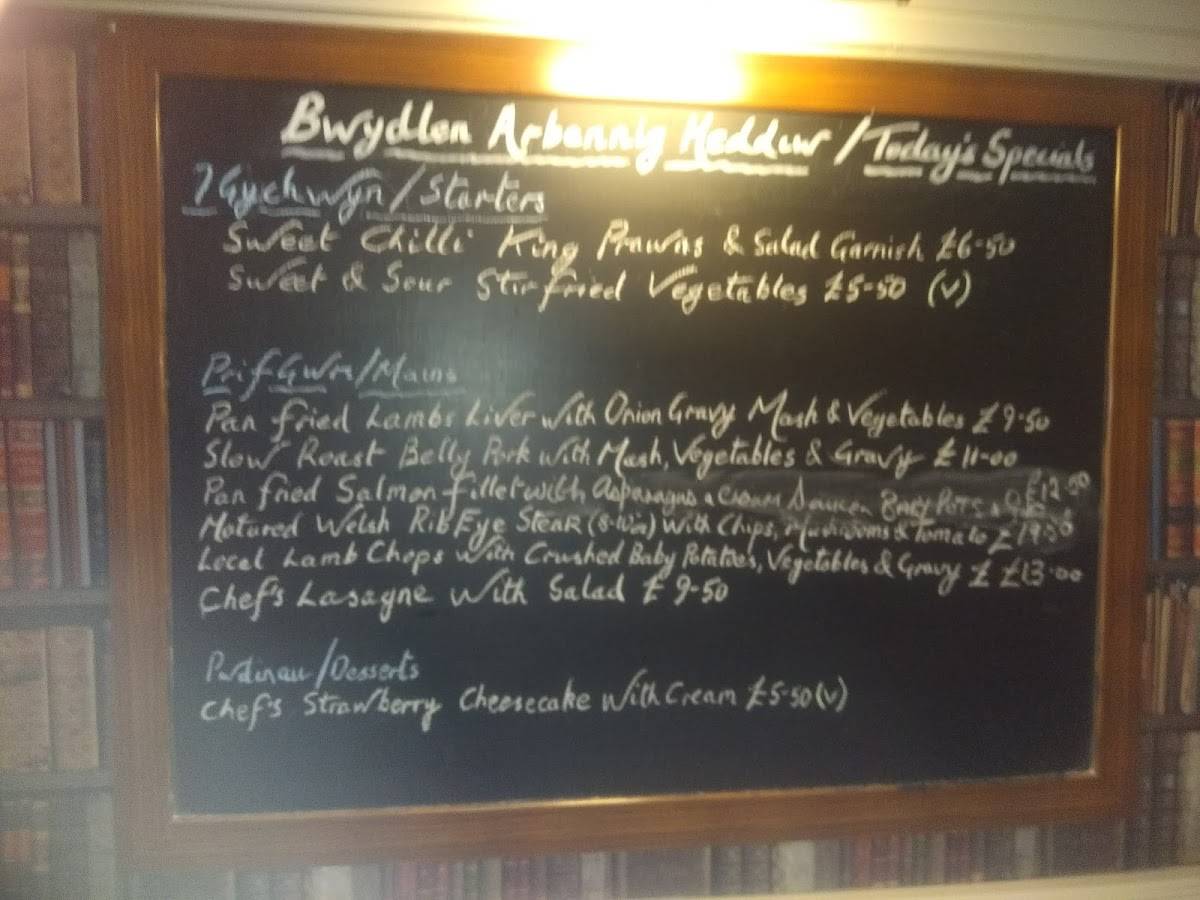 Bwydlen Arbennig Heddiw / Today's Specials
I Gychwyn / Starters
Sweet Chilli King Prawns & Salad Garnish £6-50
Sweet & Sour Stir fried Vegetables £5-50 (v)
Prif Gwrs / Mains
Pan fried Lambs Liver with Onion Gravy Mash & Vegetables £9-50
Slow Roast Belly Pork with Mash, Vegetables & Gravy £11-00
Pan fried Salmon fillet with Asparagus Cream Sauce Baby Pots £12.50
Matured Welsh Rib Eye Steak (8-10oz) With Chips, Mushrooms & Tomato £19.50
Local Lamb Chops With Crushed Baby Potatoes, Vegetables & Gravy £ £13-00
Chef's Lasagne With Salad £9-50
Pwdinau / Desserts
Chef's Strawberry Cheesecake With Cream £5-50 (v)